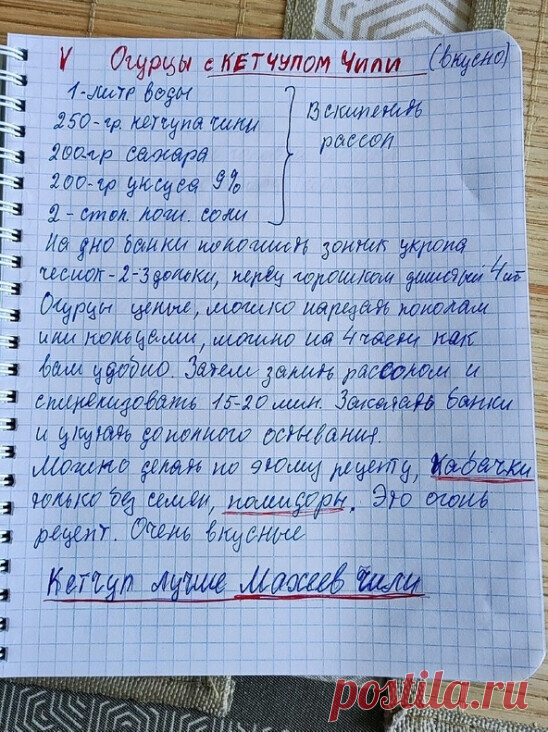 V Огурцы с КЕТЧУПОМ ЧИЛИ (вкусно)
1-литр воды
250-гр. кетчупа чили
200-гр сахара
200-гр уксуса 9%
2-стол. лож. соли
Вскипятить
рассол
На дно банки положить зонтик укропа
чеснок-2-3 дольки, перец горошком душистый 4 шт
Огурцы целые, можно нарезать пополам
или кольцами, можно на 4 части как
вам удобно. Затем залить рассолом и
стерелизовать 15-20 мин. Закатать банки
и укутать до полного остывания.
Можно делать по этому рецепту, кабачки
только без семян, помидоры. Это огонь
рецепт. Очень вкусные
Кетчуп лучше Махеев чили
postila.ru